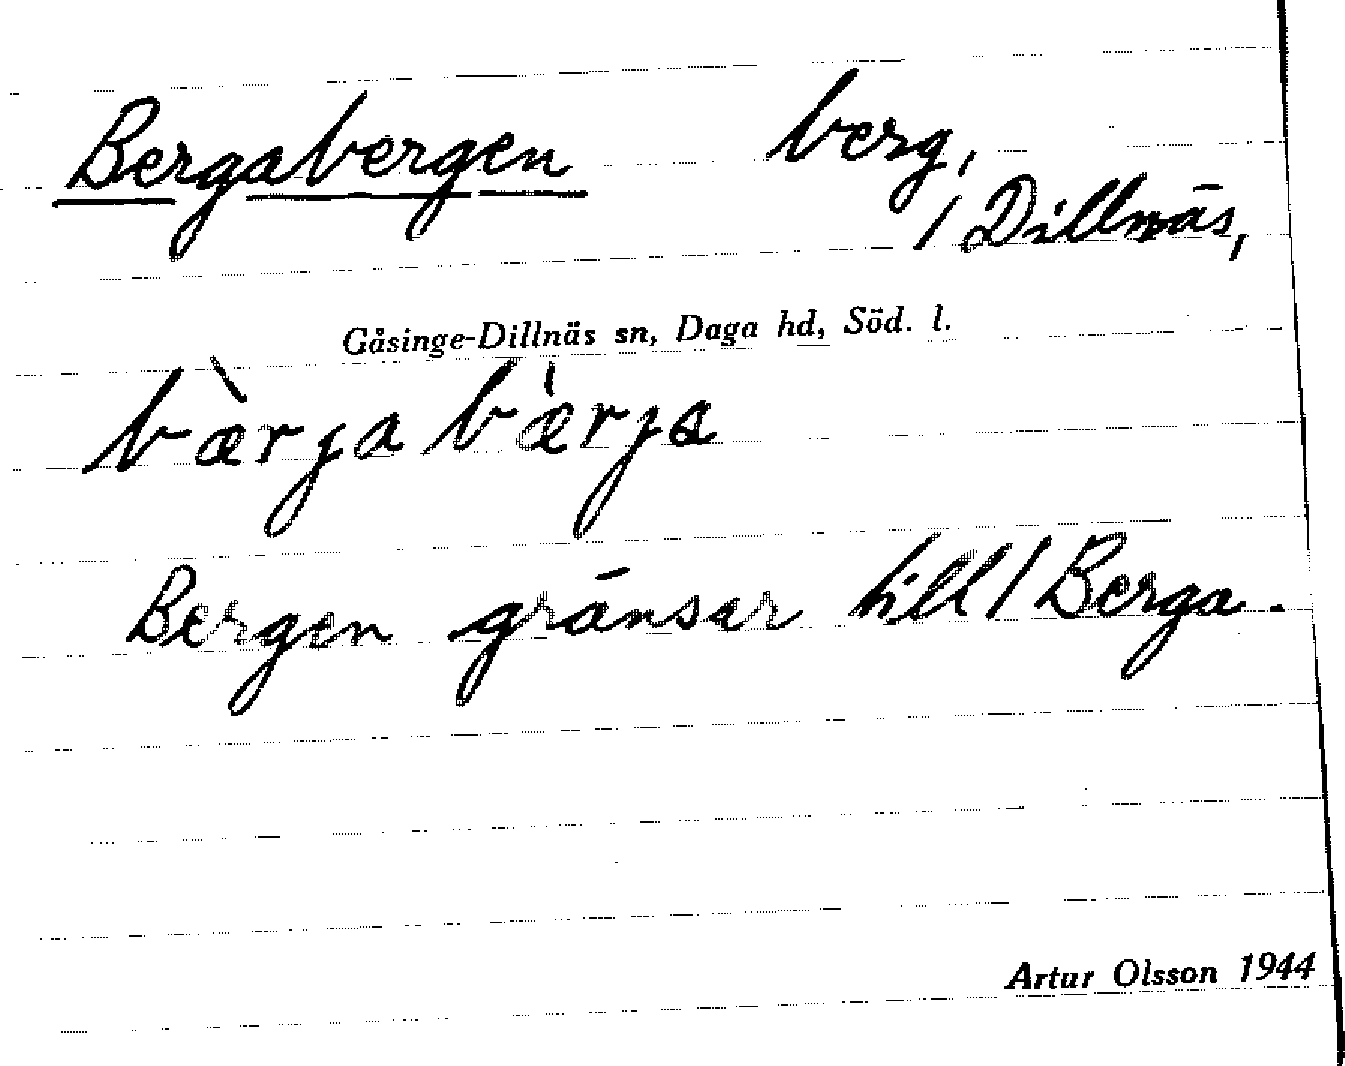 Bergabergen berg,
/ Dillnäs,
Gåsinge-Dillnäs sn, Daga hd, Söd. l.
bæ̀rja bæ̍rja
Bergen gränsar till / Berga.
Artur Olsson 1944